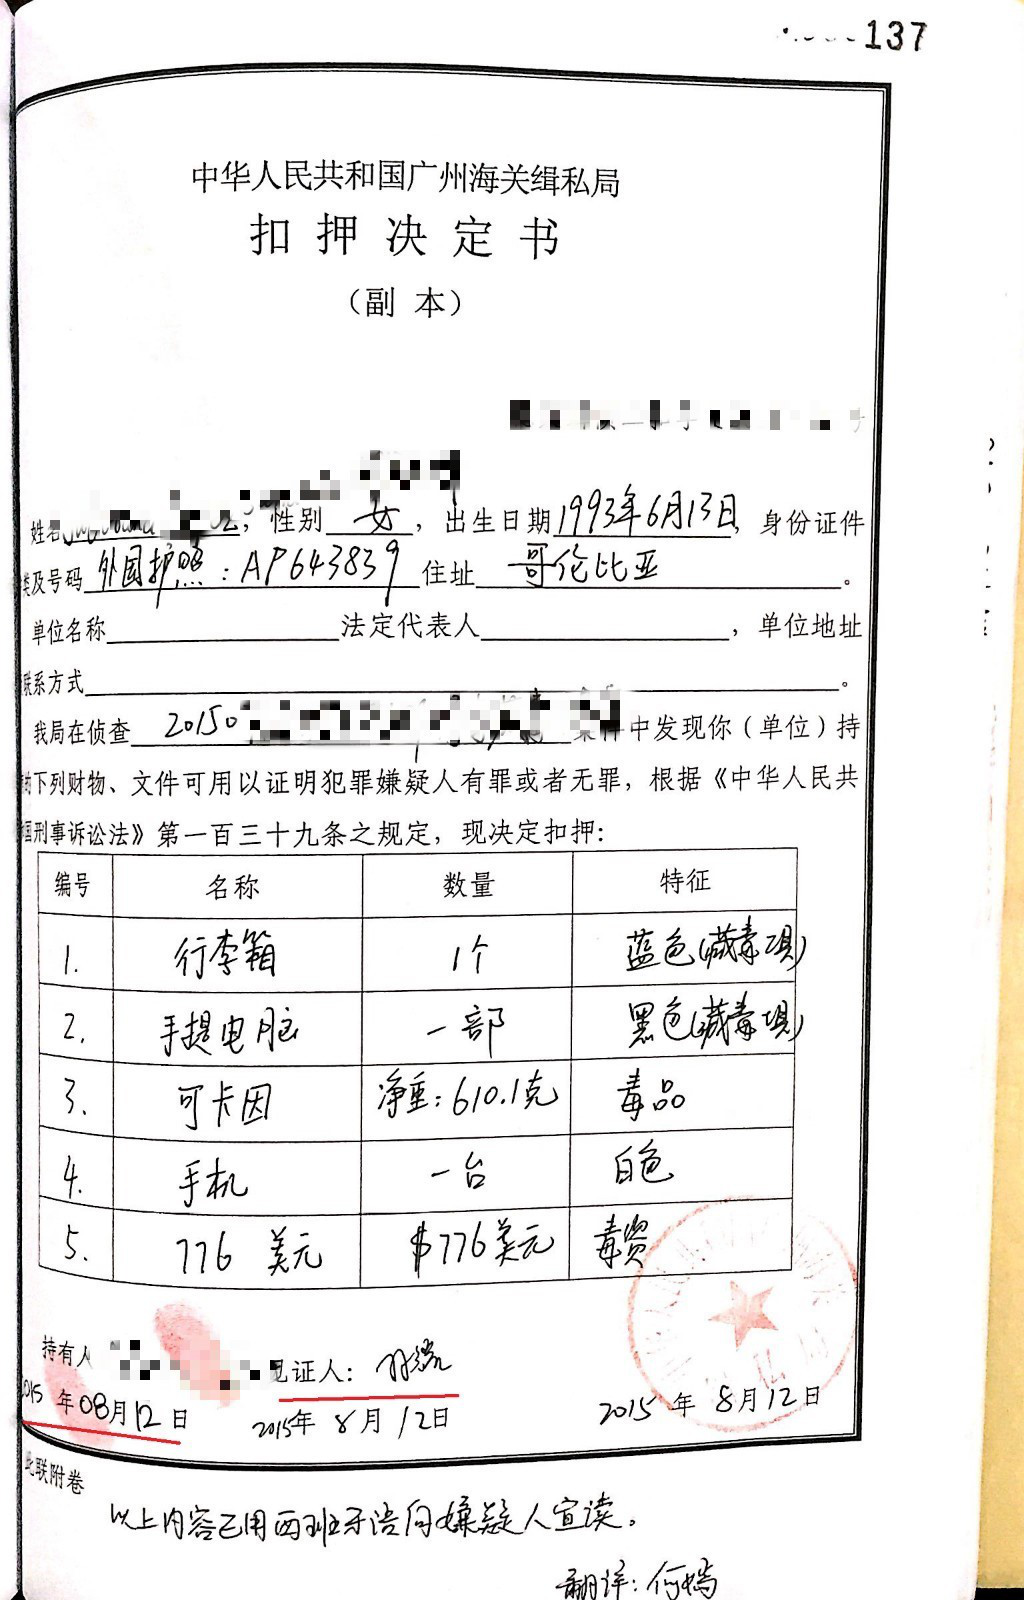 137
中华人民共和国广州海关缉私局
扣押决定书
（副本）
号
姓名，性别 女，出生日期1993年6月13日，身份证件
类及号码 外国护照：AP643839 住址 哥伦比亚。
单位名称 法定代表人，单位地址
联系方式。
我局在侦查 20150 案件中发现你（单位）持
的下列财物、文件可用以证明犯罪嫌疑人有罪或者无罪，根据《中华人民共
国刑事诉讼法》第一百三十九条之规定，现决定扣押：
编号 名称 数量 特征
1. 行李箱 1个 蓝色(藏毒现)
2. 手提电脑 一部 黑色(藏毒现)
3. 可卡因 净重：610.1克 毒品
4. 手机 一台 白色
5. 776 美元 $776美元 毒资
持有人 见证人：
2015年08月12日 2015年8月12日 2015年8月12日
此联附卷
以上内容已用西班牙语向嫌疑人宣读。
翻译：何嫣